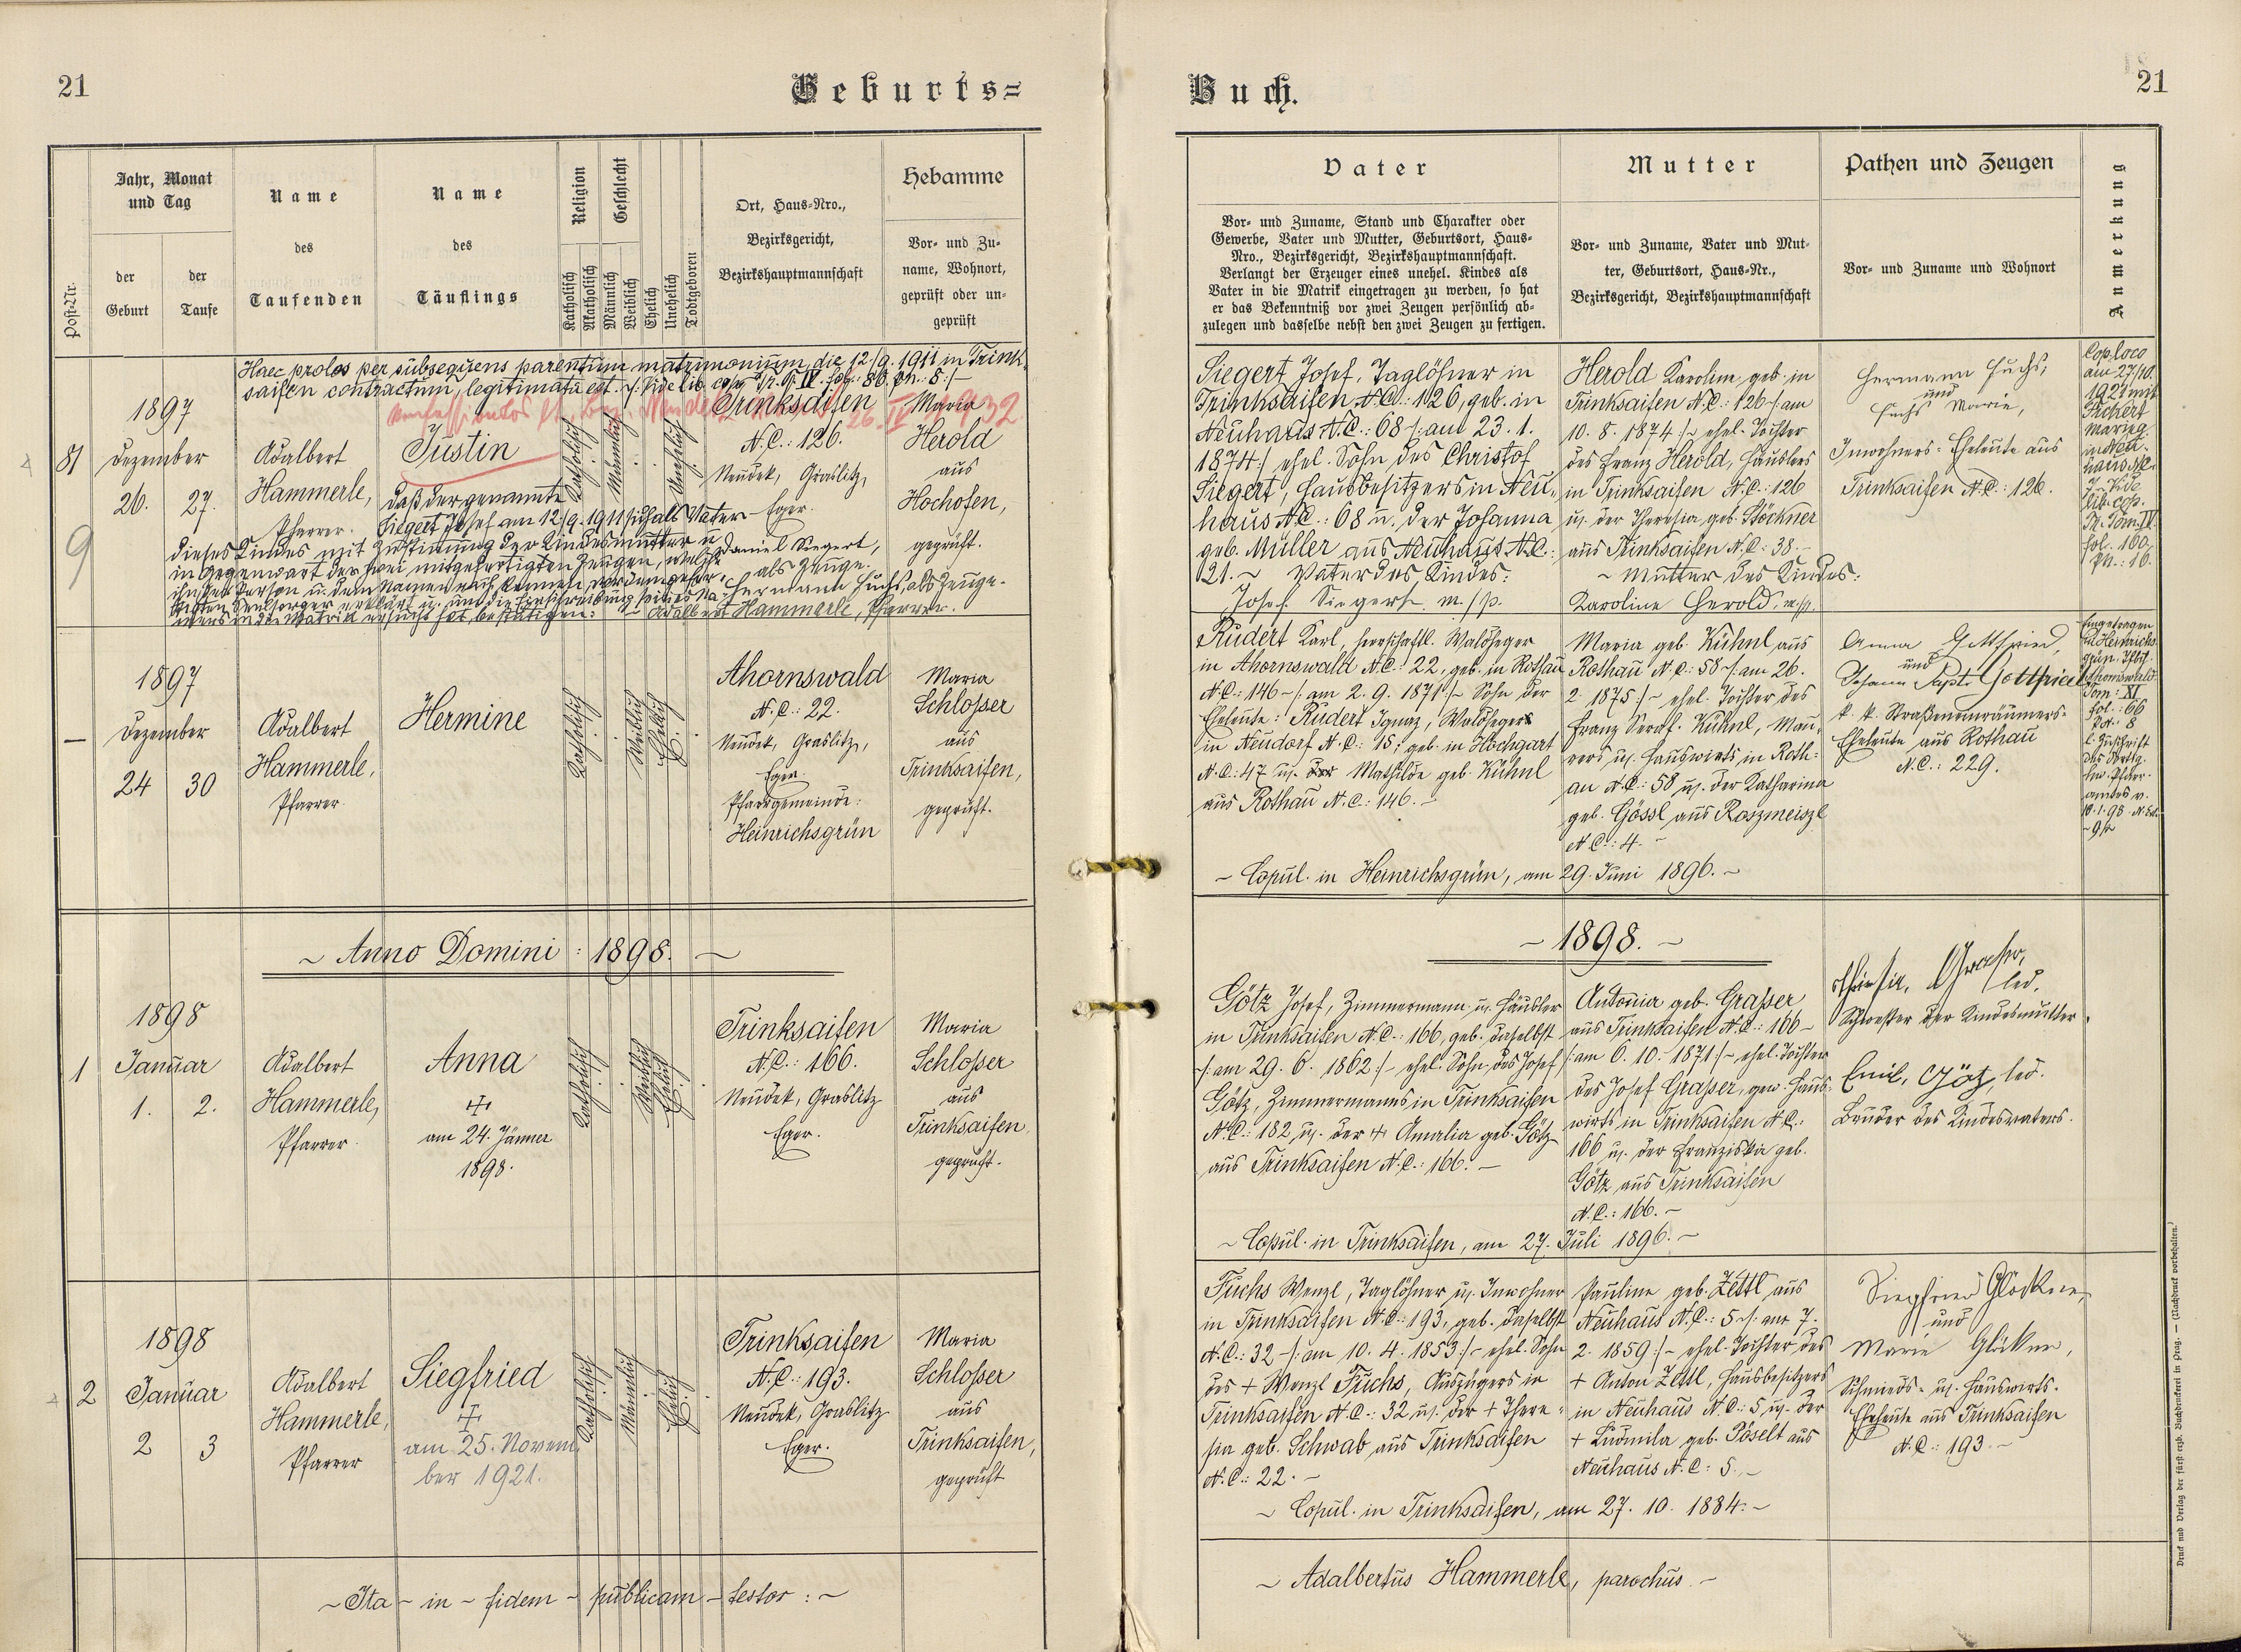 21
Geburts=
Buch.
21
Post-Nr.
Jahr, Monat
und Tag
der
Geburt
der
Taufe
Name
des
Taufenden
Name
des
Täuflings
Religion
Katholisch
Akatholisch
Geschlecht
Männlich
Weiblich
Ehelich
Unehelich
Todtgeboren
Ort, Haus-Nro.,
Bezirksgericht,
Bezirkshauptmannschaft
Hebamme
Vor- und Zu-
name, Wohnort,
geprüft oder un-
geprüft
Vater
Vor- und Zuname, Stand und Charakter oder
Gewerbe, Vater und Mutter, Geburtsort, Haus-
Nro., Bezirksgericht, Bezirkshauptmannschaft.
Verlangt der Erzeuger eines unehel. Kindes als
Vater in die Matrik eingetragen zu werden, so hat
er das Bekenntniß vor zwei Zeugen persönlich ab-
zulegen und dasselbe nebst den zwei Zeugen zu fertigen.
Mutter
Vor- und Zuname, Vater und Mut-
ter, Geburtsort, Haus-Nr.,
Bezirksgericht, Bezirkshauptmannschaft
Pathen und Zeugen
Vor- und Zuname und Wohnort
Anmerkung
Haec proles per subsequens parentium matrimonium die 12./9. 1911 in Trink-
saifen contractum, legitimata est. Vide lib. cop. Tr. T. IV. fol. 86. Pn. 8.
26. IV 1932
81
9
1897
Dezember
26. 27.
Adalbert
Hammerle,
Pfarrer.
Justin
Katholisch
Männlich
Unehelich
Trinksaifen
N.C.: 126.
Neudek, Graslitz,
Eger.
Maria
Herold
aus
Hochofen,
geprüft.
Daß der genannte
Siegert Josef am 12/9. 1911 sich als Vater
dieses Kindes mit Zustimmung der Kindesmutter u.
in Gegenwart der zwei mitgefertigten Zeugen, welche
ihn der Person u. dem Namen nach kennen, vor dem gefer-
tigten Seelsorger erklärt u. um die Einschreibung seines Na-
mens in die Matrik ersucht hat, bestätigen:
Daniel Siegert,
als Zeuge.
Hermann Fuchs, als Zeuge.
Adalbert Hammerle, Pfarrer.
Siegert Josef, Taglöhner in
Trinksaifen N.C.: 126, geb. in
Neuhaus N.C.: 68 /: am 23. 1.
1874 :/ ehel. Sohn des Christof
Siegert, Hausbesitzers in Neu-
haus N.C.: 68 u. der Johanna
geb. Müller aus Neuhaus N.C.:
21. ~ Vater des Kindes:
Josef Siegert m./p.
Herold Karoline, geb. in
Trinksaifen N.C.: 126 /: am
10. 8. 1874 :/ ehel. Tochter
des Franz Herold, Häuslers
in Trinksaifen N.C.: 126
u. der Theresia geb. Stöckner
aus Trinksaifen N.C.: 38.
~ Mutter des Kindes:
Karoline Herold. m./p.
Hermann Fuchs,
und
Fuchs Marie,
Inwohners-Eheleute aus
Trinksaifen N.C.: 126.
Cop. loco
am 27/10.
1921 mit
Marie
lib. cop.
Tr. Tom. IV.
fol. 160.
Pn.: 16.
—
1897
Dezember
24 30
Adalbert
Hammerle,
Pfarrer.
Hermine
Katholisch
Weiblich
Ehelich
Ahornswald
N.C.: 22.
Neudek, Graslitz,
Eger.
Pfarrgemeinde:
Heinrichsgrün
Maria
Schlosser
aus
Trinksaifen,
geprüft.
Rudert Karl, herrschaftl. Waldheger
in Ahornswald N.C.: 22, geb. in Rothau
N.C.: 146 /: am 2. 9. 1871 :/ Sohn der
Eheleute: Rudert Ignaz, Waldheger
in Neudorf N.C.: 15; geb. in Hochgart
N.C.: 47 u. der Mathilde geb. Kühnl
aus Rothau N.C.: 146. –
Maria geb. Kühnl aus
Rothau N.C.: 58 /: am 26.
2 1875 :/ ehel. Tochter des
Franz Seraf. Kühnl, Mau-
rers u. Hauswirts in Roth-
au N.C.: 58 u. der Katharina
geb. Gössl aus Roszmeiszl
N.C.: 4. –
Anna Gottfried,
und
Johann Bapt. Gottfried
k. k. Straßeneinräumers-
Eheleute aus Rothau
N.C.: 229.
Eingetragen
in Heinrichs-
grün,
Ahornswald
Tom. XI
fol.: 66
l. Zuschrift
~ Copul. in Heinrichsgrün, am 29. Juni 1896. ~
~ Anno Domini : 1898. ~
~ 1898. ~
1
1898
Januar
1. 2.
Adalbert
Hammerle,
Pfarrer.
Anna
✠
am 24. Jänner
1898.
Katholisch
Weiblich
Ehelich
Trinksaifen
N.C.: 166.
Neudek, Graslitz
Eger.
Maria
Schlosser
aus
Trinksaifen
geprüft.
Götz Josef, Zimmermann u. Häusler
in Trinksaifen N.C.: 166, geb. daselbst
/: am 29. 6. 1862 :/ ehel. Sohn des Josef
Götz, Zimmermanns in Trinksaifen
N.C.: 182 u. der ✠ Amalia geb. Götz
aus Trinksaifen N.C.: 166. –
Antonia geb. Grasser
aus Trinksaifen N.C.: 166 –
/: am 6. 10. 1871 :/ ehel. Tochter
des Josef Grasser, gew. Haus-
wirts in Trinksaifen N.C.:
166 u. der Franziska geb.
Götz aus Trinksaifen
N.C.: 166. –
Grasser,
led.
Schwester der Kindesmutter.
Emil Götz, led.
Bruder des Kindesvaters.
~ Copul. in Trinksaifen, am 27. Juli 1896. ~
2
1898
Januar
2 3
Adalbert
Hammerle,
Pfarrer
Siegfried
✠
am 25. Novem-
ber 1921.
Katholisch
Männlich
Ehelich
Trinksaifen
N.C.: 193.
Neudek, Graslitz
Eger.
Maria
Schlosser
aus
Trinksaifen,
geprüft
Fuchs Wenzl, Taglöhner u. Inwohner
in Trinksaifen N.C.: 193, geb. daselbst
N.C.: 32 /: am 10. 4. 1853 :/ ehel. Sohn
des + Wenzl Fuchs, Auszügers in
Trinksaifen N.C.: 32 u. der + There-
sia geb. Schwab aus Trinksaifen
N.C.: 22. –
Pauline geb. Zettl aus
Neuhaus N.C.: 5 /: am 7.
2. 1859 :/ ehel. Tochter des
+ Anton Zettl, Hausbesitzers
in Neuhaus N.C.: 5 u. der
+ Ludmila geb. Pöselt aus
Neuhaus N.C.: 5. –
Siegfried Glöckner,
und
Marie Glöckner,
Schmieds- u. Hauswirts-
Eheleute aus Trinksaifen
N.C.: 193. –
~ Copul. in Trinksaifen, am 27. 10. 1884. ~
~ Ita – in – fidem – publicam – testor : ~
~ Adalbertus Hammerle, parochus. ~
Druck und Verlag der fürst-erzb. Buchdruckerei in Prag. — (Nachdruck vorbehalten.)